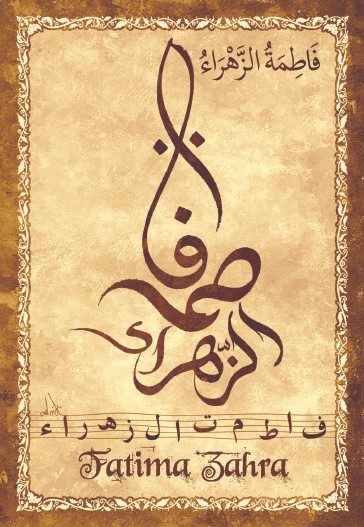 فَاطِمَةُ الزَّهْرَاءُ
فاطمة
الزّهراء
ف ا ط م ت ا ل ز ه ر ا ء
Fatima Zahra